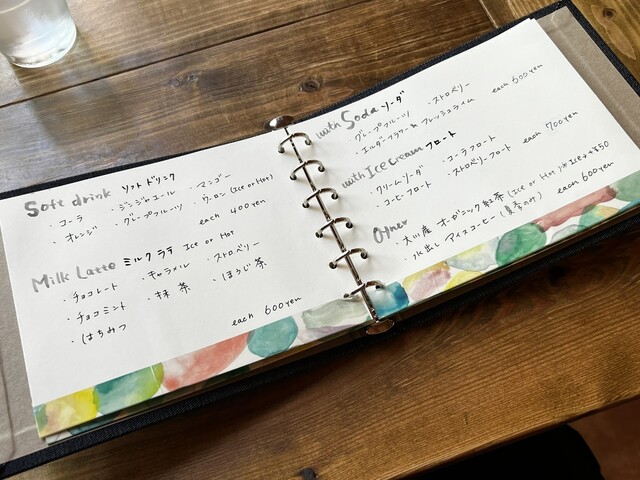 Soft drink ソフトドリンク
・コーラ ・ジンジャエール ・マンゴー
・オレンジ ・グレープフルーツ ・ウーロン (Ice or Hot)
each 400yen
Milk Latte ミルクラテ Ice or Hot
・チョコレート ・キャラメル ・ストロベリー
・チョコミント ・抹茶 ・ほうじ茶
・はちみつ
each 600yen
with Soda ソーダ
・グレープフルーツ ・ストロベリー
・エルダーフラワー & フレッシュライム each 600yen
with Ice cream フロート
・クリームソーダ ・コーラフロート
・コーヒーフロート ・ストロベリーフロート each 700yen
Other
・大川産 オーガニック紅茶 (Ice or Hot)*Iceは+¥50
・水出し アイスコーヒー (夏季のみ) each 600yen